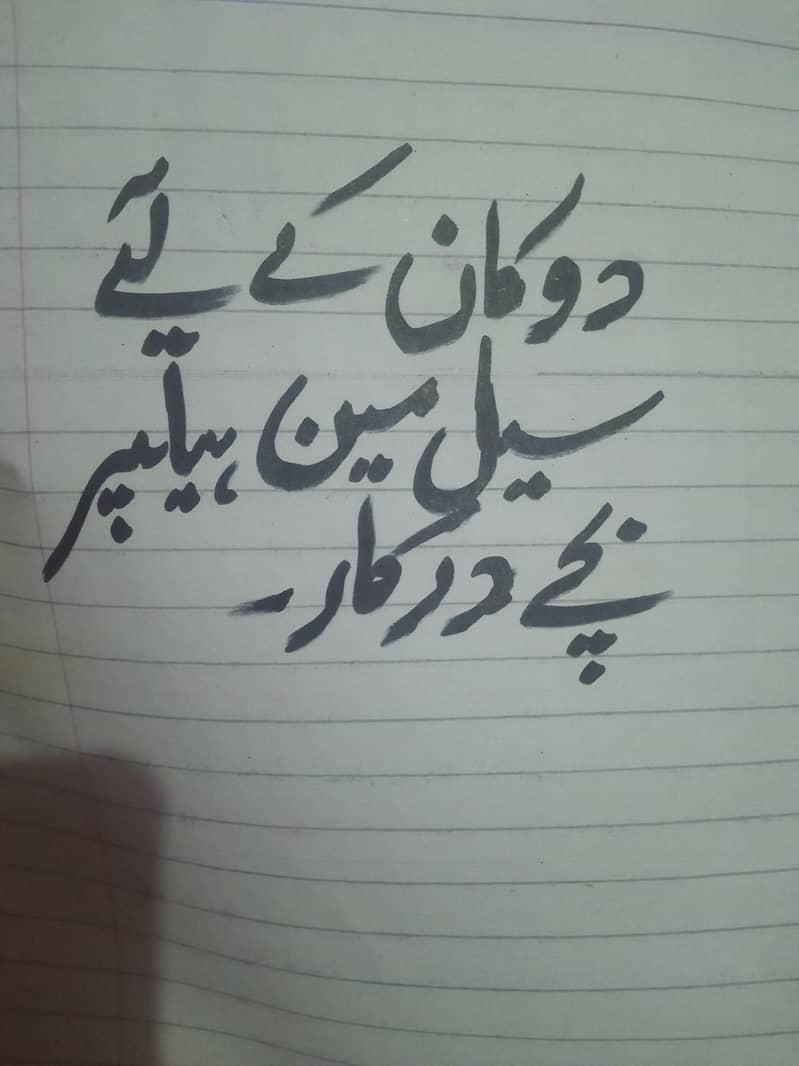 دوکان کے لئے
سیل مین ہیلپر
بچے درکار۔